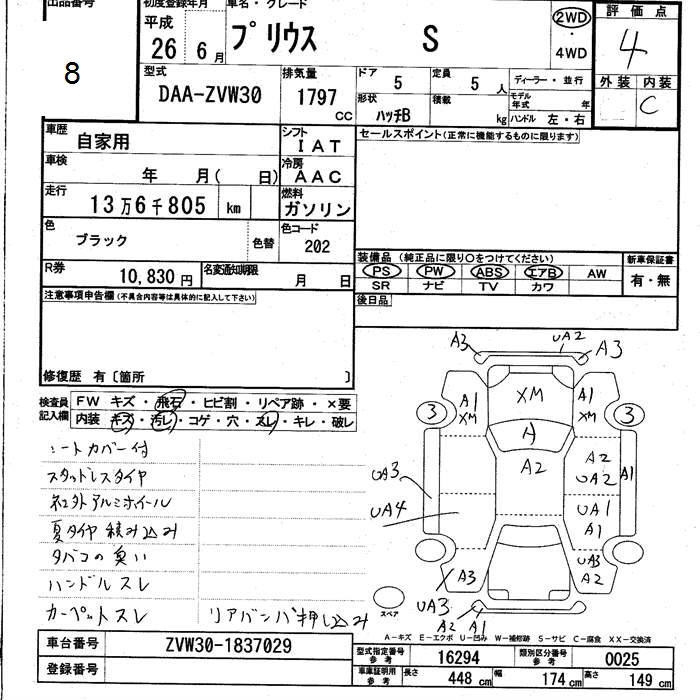 出品番号
8
初度登録年月
平成
26 6月
車名・グレード
プリウス S
2WD
・
4WD
評価点
4
外装 内装
C
型式
DAA-ZVW30
排気量
1797
CC
ドア 5
定員 5人
形状 ハッチB
積載 kg
ディーラー・並行
モデル年式 年
ハンドル 左・右
車歴
自家用
シフト
IAT
車検
年 月( 日)
冷房
AAC
走行
13万6千805 km
燃料
ガソリン
色
ブラック
色替
色コード
202
R券
10,830円
名変通知期限
月 日
セールスポイント(正常に機能するものに限ります)
装備品(純正品に限り○をつけてください)
新車保証書
PS PW ABS エアB AW
SR ナビ TV カワ
有・無
後日品
注意事項申告欄(不具合内容等は具体的に記入して下さい)
修復歴 有〔箇所 〕
検査員
記入欄
FW キズ・飛石・ヒビ割・リペア跡・×要
内装 キズ・汚レ・コゲ・穴・スレ・キレ・破レ
シートカバー付
スタッドレスタイヤ
社外アルミホイール
夏タイヤ積み込み
タバコの臭い
ハンドルスレ
カーペットスレ
リアバンパ押し込み
A3 UA2 A3
A1 XM XM A1 XM
3 3
A
A2
A2
UA2
A1
UA3
UA4
UA1
A1
UA3
A2
A3
UA3
A2 A1
スペア
A-キズ E-エクボ U-凹み W-補修跡 S-サビ C-腐食 XX-交換済
車台番号
ZVW30-1837029
登録番号
型式指定番号
参考
16294
類別区分番号
参考
0025
車庫証明用
参考
長さ 448 cm 幅 174 cm 高さ 149 cm